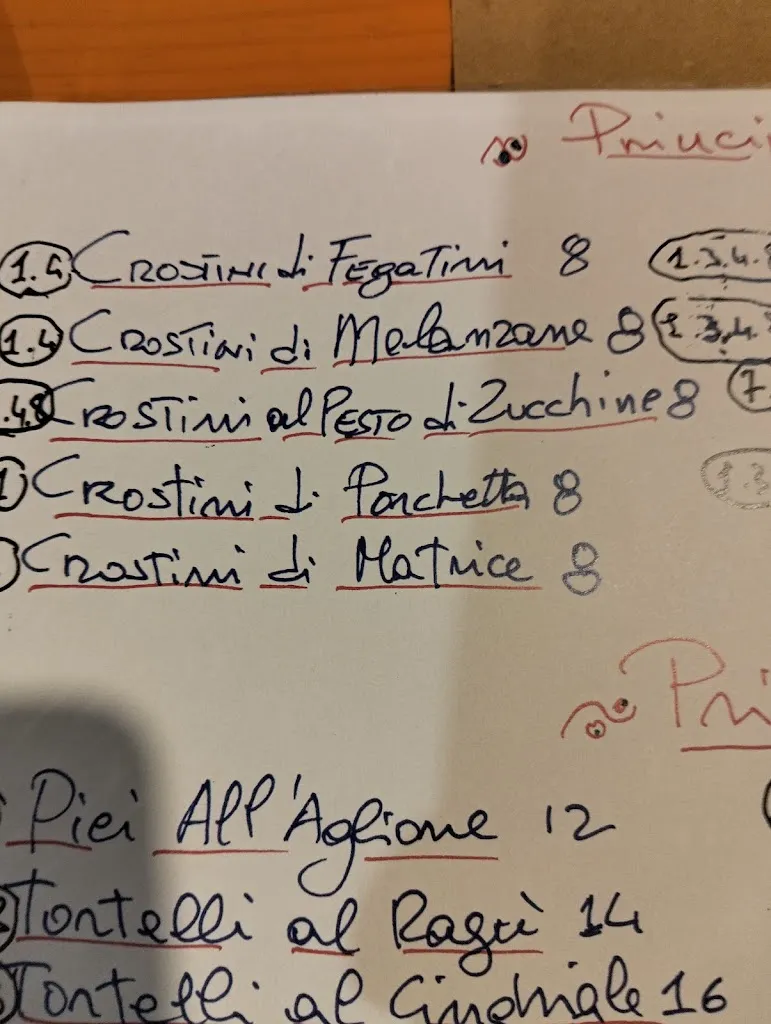 Princi
1.4 Crostini di Fegatini 8 1.3.4.8
1.4 Crostini di Melanzane 8 1.3.4.
.4.8 Crostini al Pesto di Zucchine 8 7.
1 Crostini di Porchetta 8 1.3
Crostini di Matrice 8
Pri
Pici All'Aglione 12
Tortelli al Ragù 14
Tortelli al Cinghiale 16